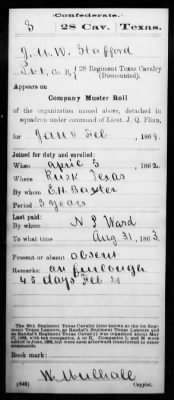 Confederate.
S 28 Cav. Texas.
J. M. W. Stafford
Pvt, Co. B, 28 Regiment Texas Cavalry
(Dismounted).
Appears on
Company Muster Roll
of the organization named above, detached in
squadron under command of Lieut. J. Q. Flinn,
for Jan & Feb, 1864.
Joined for duty and enrolled:
When 5, 1862.
Where Rusk Texas
By whom E. H. Baxter
Period 3 years
Last paid:
By whom N P Ward
To what time Aug 31, 1863.
Present or absent absent
Remarks: on furlough
45 days Feb
Book mark:
W. Mulhall
(642) Copyist.